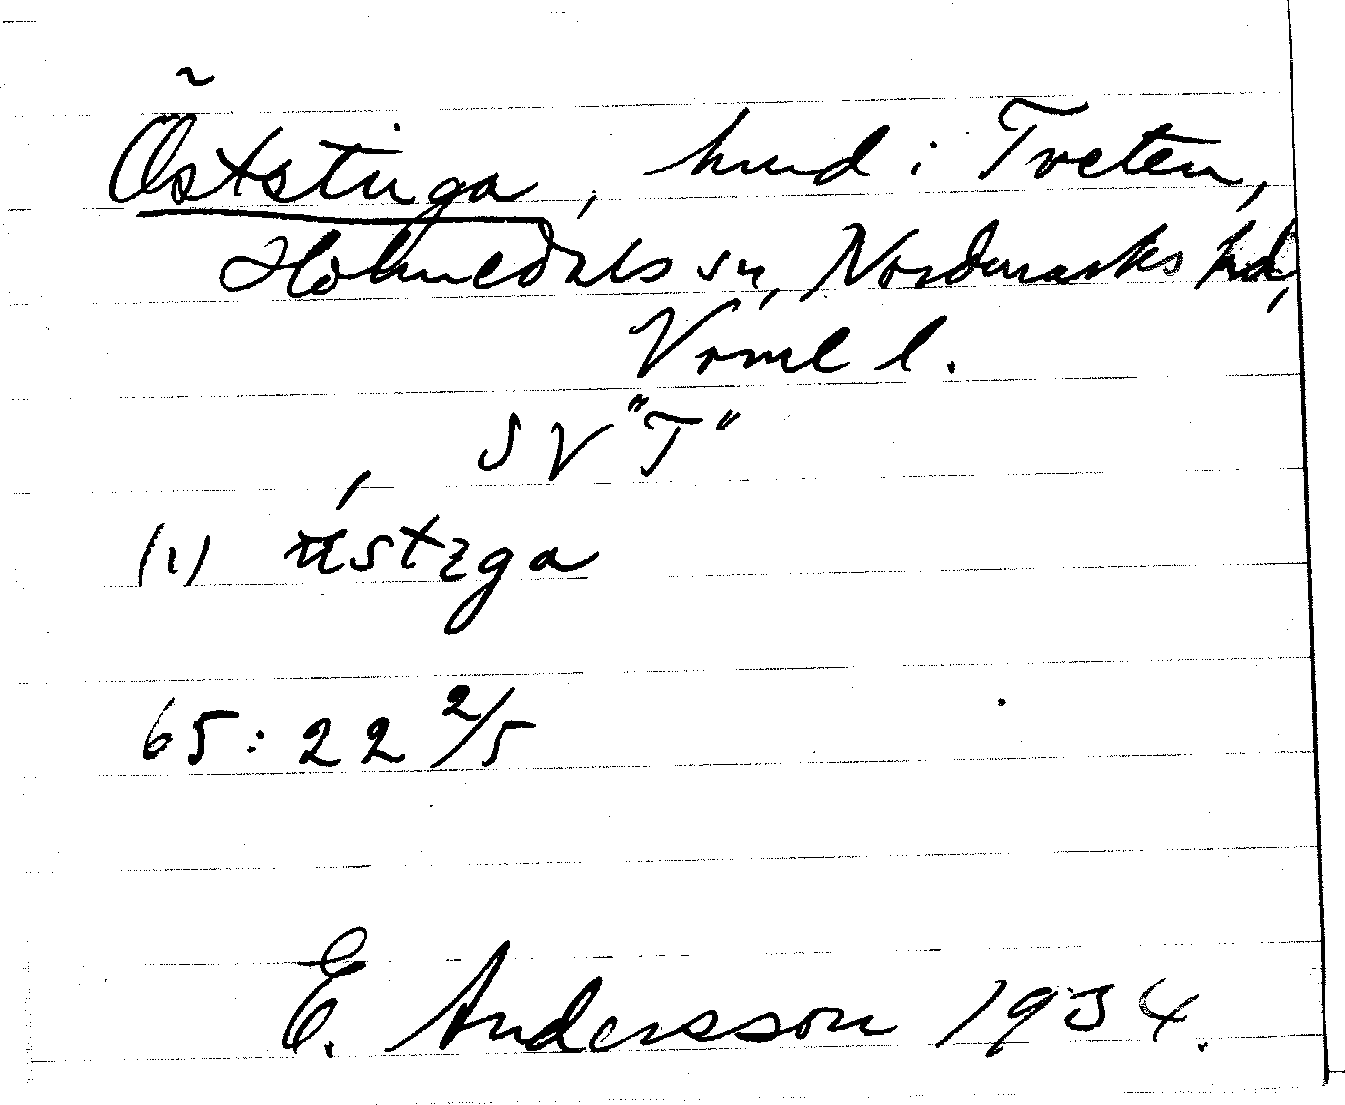 Öststuga, hund i Tveten,
Holmedals sn, Nordmarks hd,
Vrml l.
SV "T"
(1)
65:22 2/5
E. Andersson 1934.